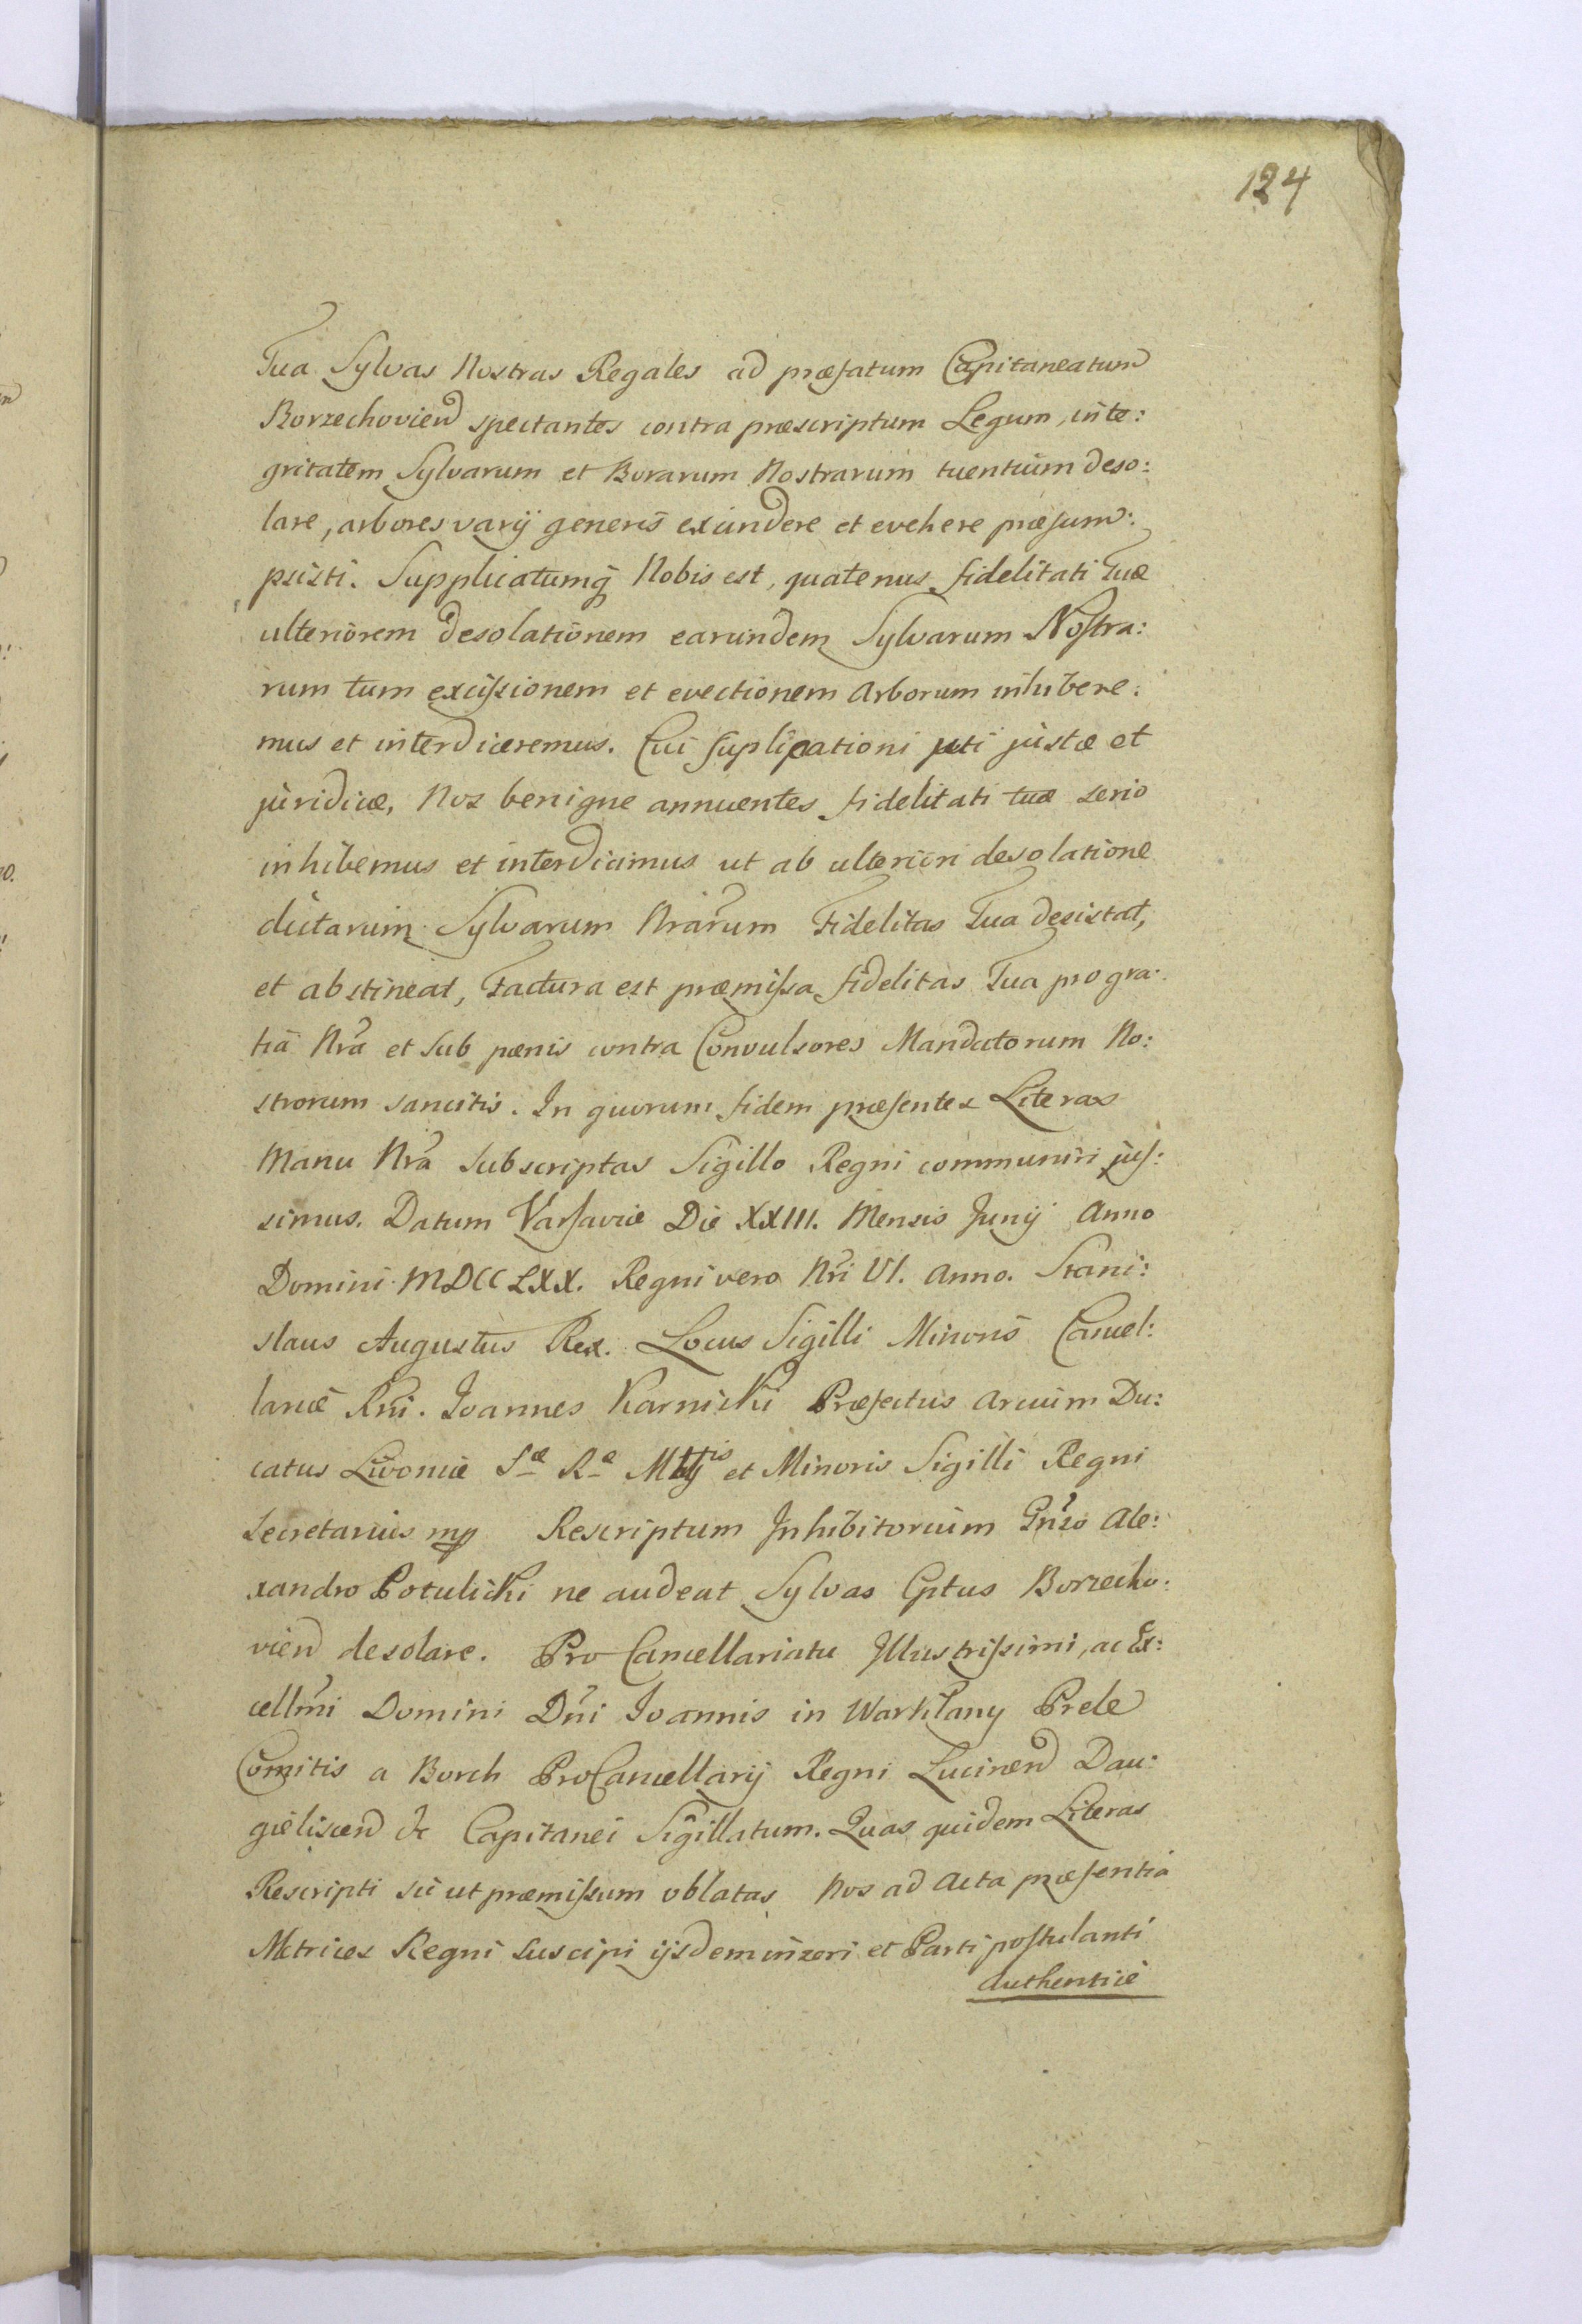 124
Tua Sylvas Nostras Regales ad præfatum Capitaneatum
Borzechovien spectantes contra præscriptum Legum, inte:
gritatem Sylvarum et Borarum Nostrarum tuentium deso:
lare, arbores varij generis excindere et evehere præsum:
psisti. Supplicatumq Nobis est, quatenus fidelitati Tuæ
ulteriorem desolationem earundem Sylvarum Nostra:
rum tum excissionem et evectionem Arborum inhibere:
mus et interdiceremus. Cui suplicationi uti justæ et
juridicæ, Nos benigne annuentes fidelitati tuæ serio
inhibemus et interdicimus ut ab ulteriori desolatione
dictarum Sylvarum Nrarum Fidelitas Tua desistat,
et abstineat, Factura est præmissa fidelitas Tua pro gra:
tia Nra et sub pænis contra Convulsores Mandatorum No:
strorum sancitis. In quorum fidem præsentes Literas
Manu Nra Subscriptas Sigillo Regni communiri jus:
simus. Datum Varsaviæ Die XXIII. Mensis Junij Anno
Domini MDCCLXX. Regni vero Nri VI. Anno. Stani:
slaus Augustus Rex. Locus Sigilli Minoris Cancel:
lariæ Rni. Joannes Karnicki Præfectus Arcium Du:
catus Livoniæ Sæ Ræ Mtis et Minoris Sigilli Regni
Secretarius mp Rescriptum Inhibitorium Gnso Ale:
xandro Potulicki ne audeat Sylvas Cptus Borzecho:
vien desolare. Pro Cancellariatu Illustrissimi, ac Ex:
cellmi Domini Dni Joannis in Warklany Prele
Comitis a Borch ProCancellarij Regni Lucinen Dau:
gieliscen &c Capitanei Sigillatum. Quas quidem Literas
Rescripti sic ut præmissum oblatas Nos ad Acta præsentia
Metrices Regni suscipi ijsdem inseri et Parti postulanti
Authentice